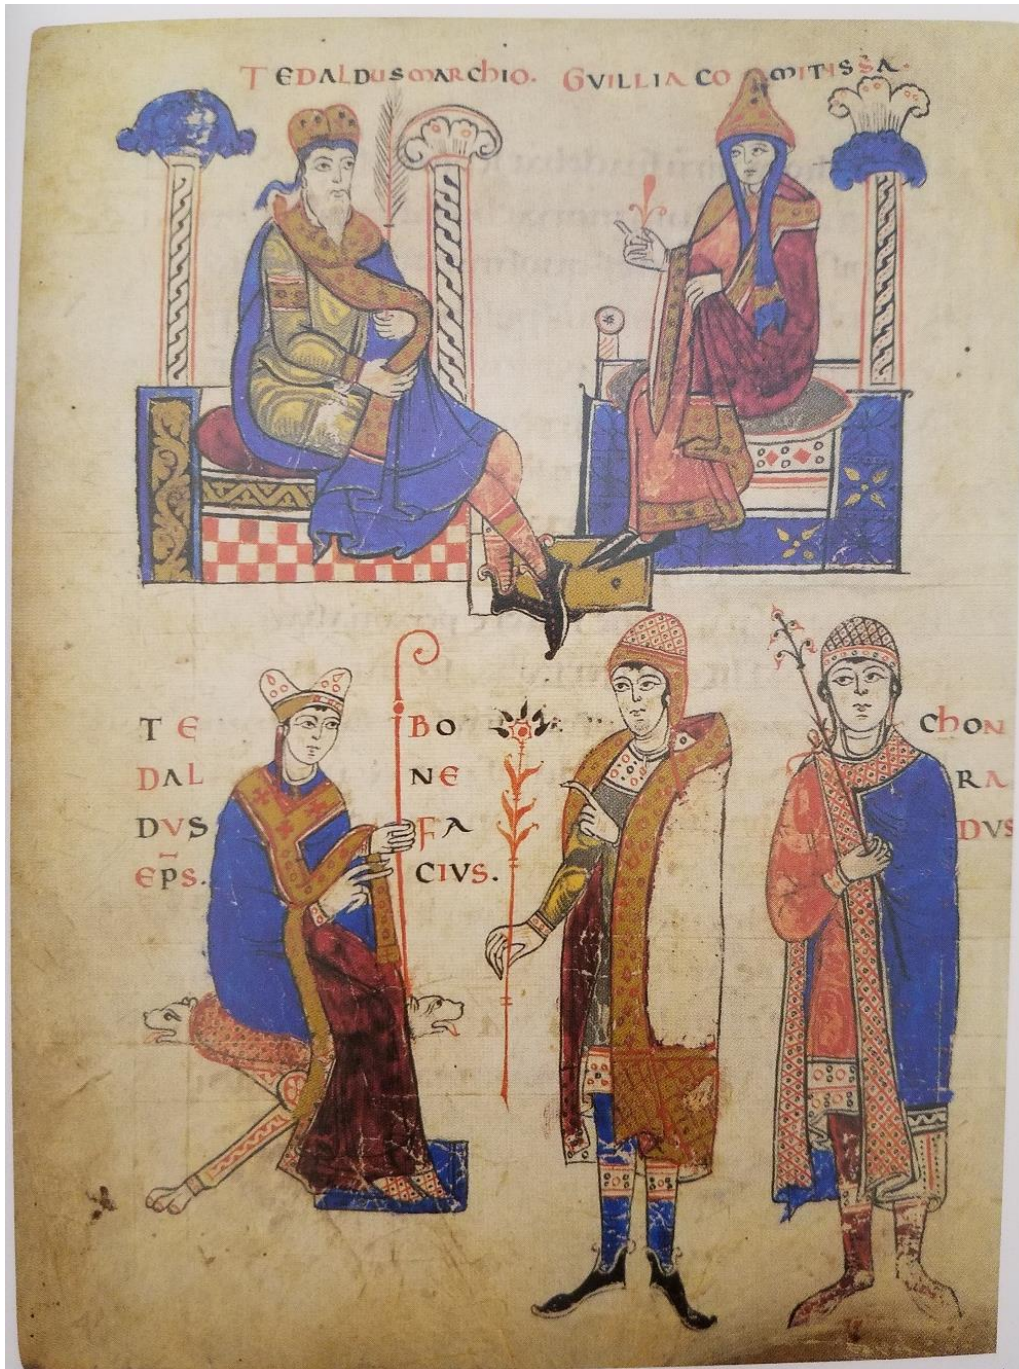 TEDALDUS MARCHIO. GVILLIA COMITISSA.
TE
DAL
DVS
EPS.
BO
NE
FA
CIVS.
CHON
RA
DVS